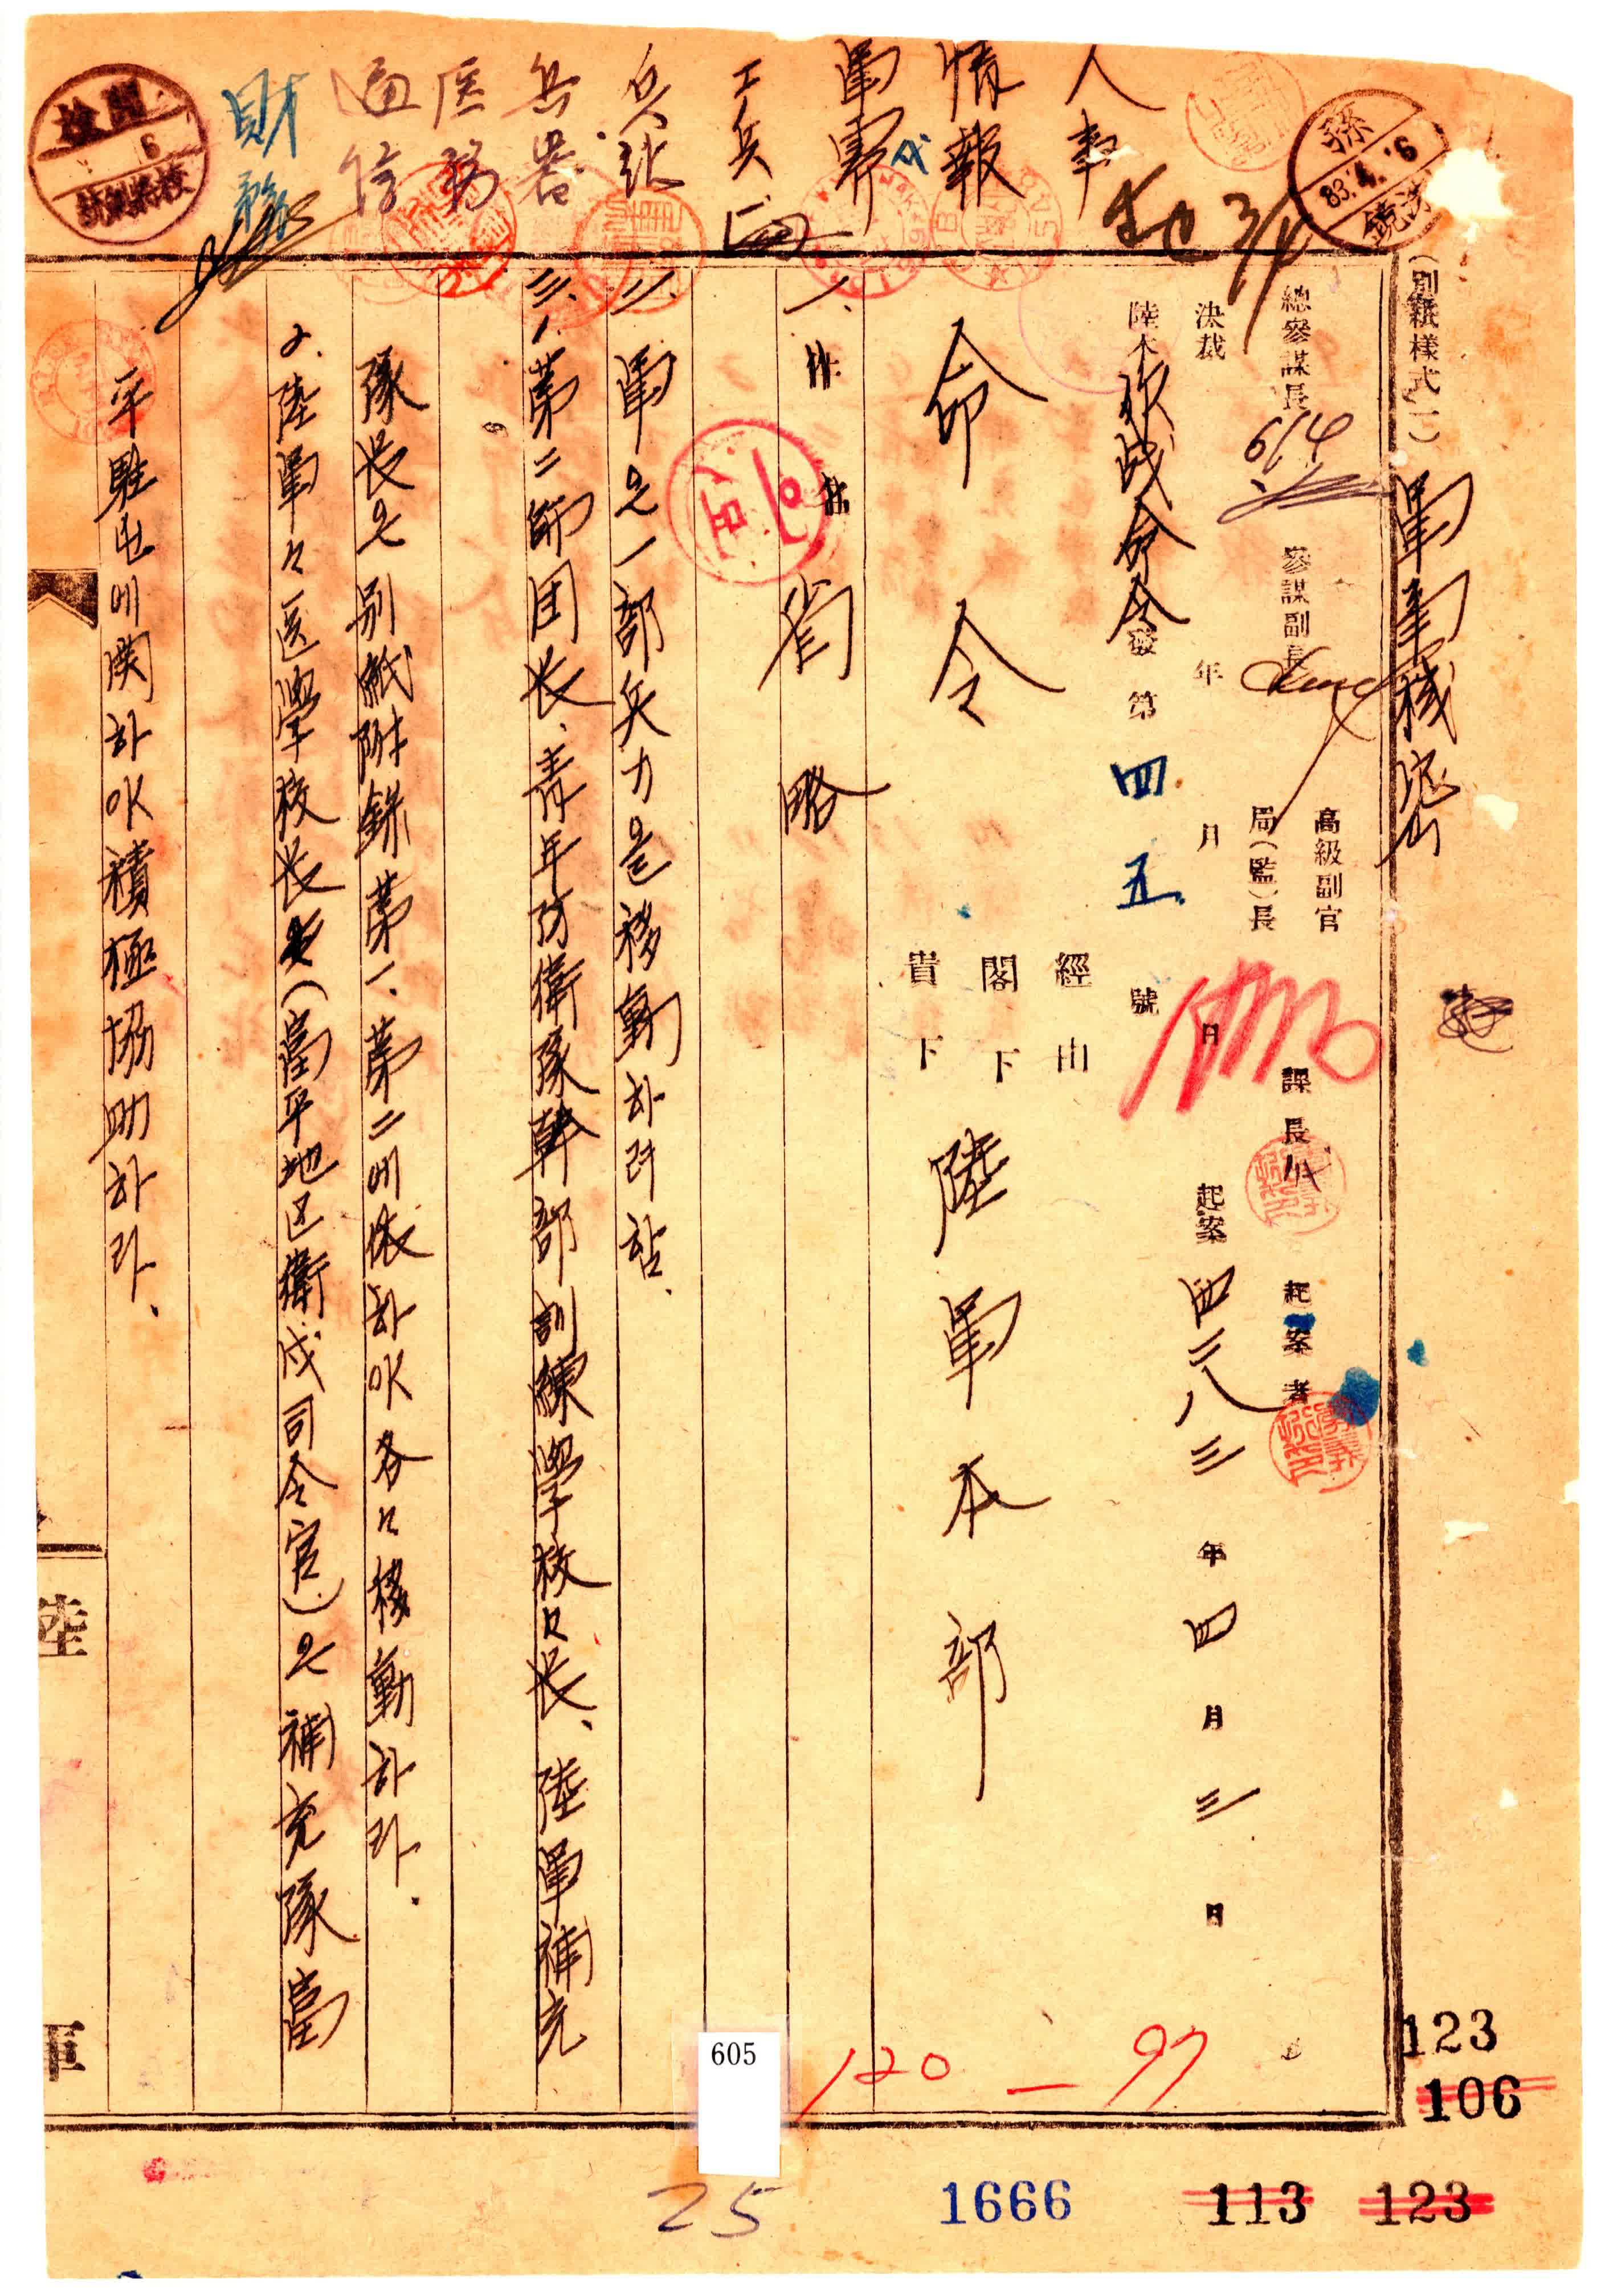 (別紙樣式一)
軍事機密
總參謀長
參謀副長
高級副官
局(監)長
課長
起案者
決裁
年
月
日
起案 四二八三年四月三日
陸本作战命令 發第四五號
經由
閣下
貴下
命令
陸軍本部
一、
省略
二、軍은一部兵力을移動하려함.
三、1、第二師団长、靑年防衛隊幹部訓練學校々长、陸軍補充
隊长은別紙附錄第一、第二에依하야各々移動하라.
2.陸軍々医學校长(富平地区衛戍司令官)은補充隊富
平駐屯에関하야積極協助하라.
人事
情報
軍需
工兵
兵站
兵器
医務
通信
財務
檢閱
6
83.4.6
3/4
6/4
陸
軍
97
120
123
106
605
25
1666
113
123